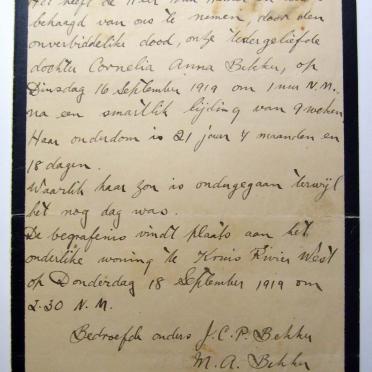 Het heeft de Heer van
behaagd van ons te nemen, door den
onverbiddelike dood, onze teder geliefde
dochter Cornelia Anna Bekker, op
Dinsdag 16 September 1919 om 1 uur N.M.
na een smartlik lijding van 9 weken
Haar ouderdom is 21 jaar 4 maanden en
18 dagen.
Waarlik haar zon is ondergegaan terwijl
het nog dag was.
De begrafenis vindt plaats aan het
ouderlike woning te Kruis Rivier West
op Donderdag 18 September 1919 om
2.30 N.M.
Bedroefde ouders J.C.P. Bekker
M.A. Bekker